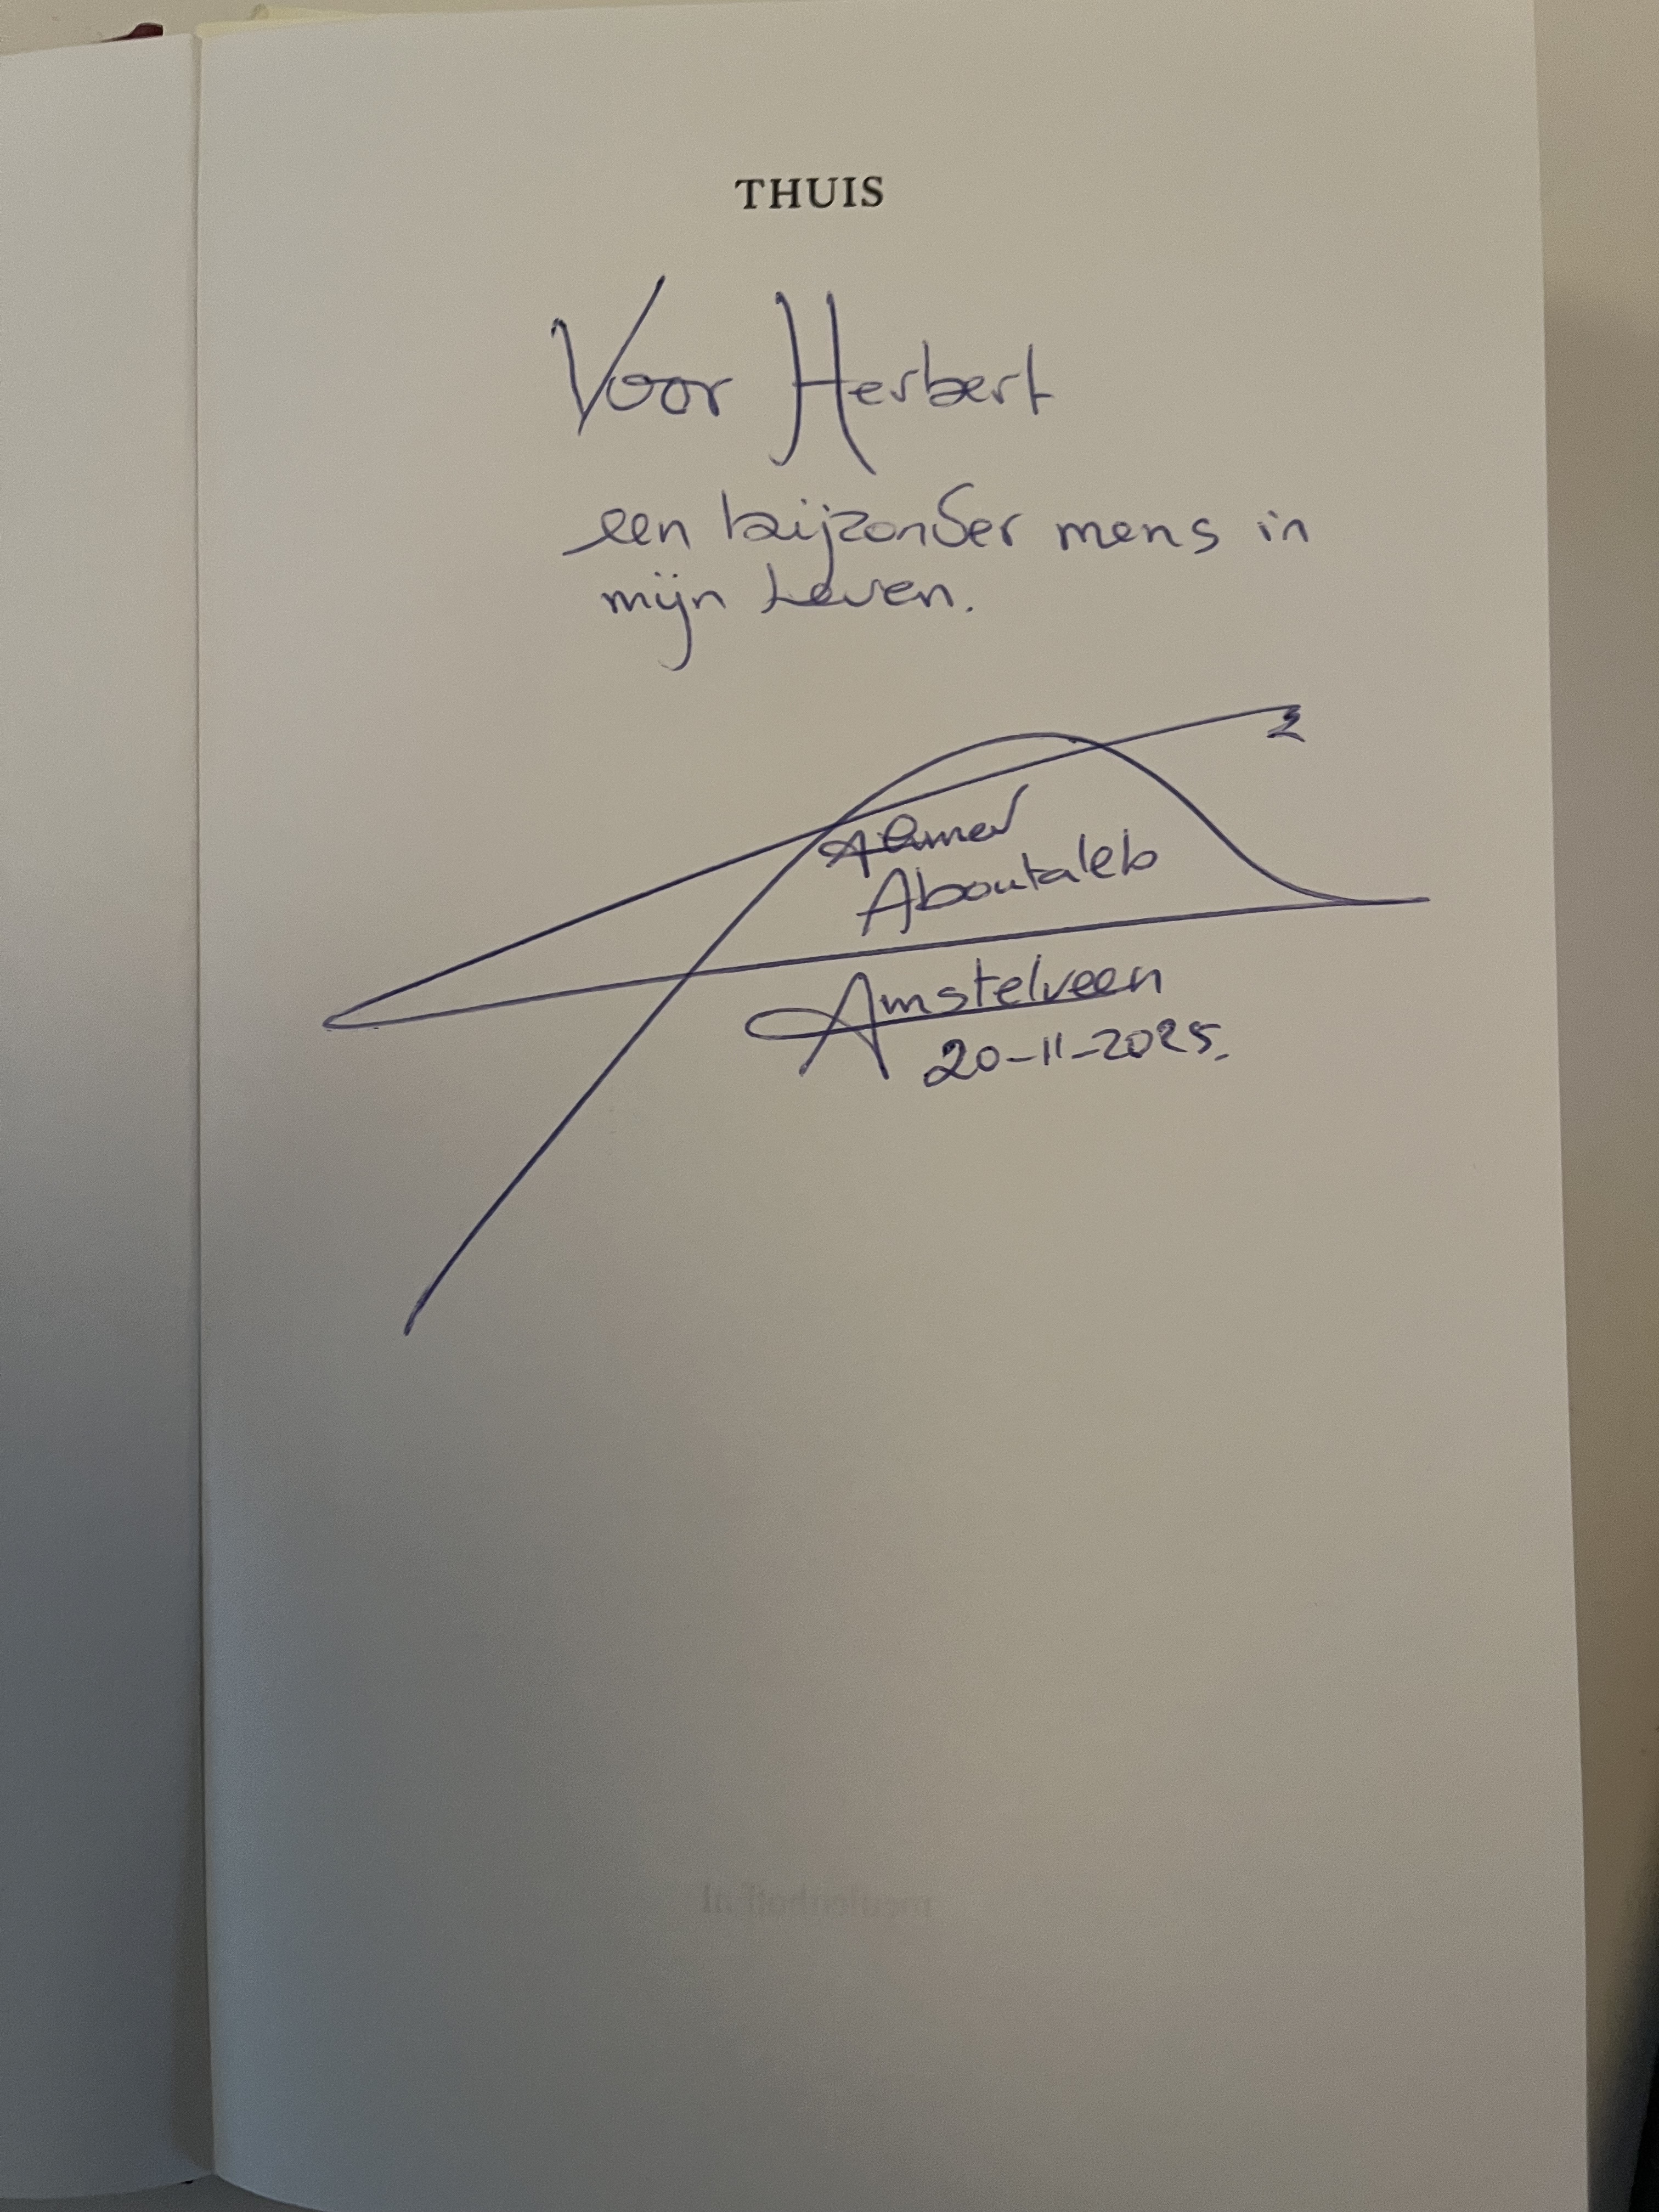 THUIS
Voor Herbert
een bijzonder mens in
mijn Leven.
Ahmed
Aboutaleb
Amstelveen
20-11-2025.
meulenhoff.nl